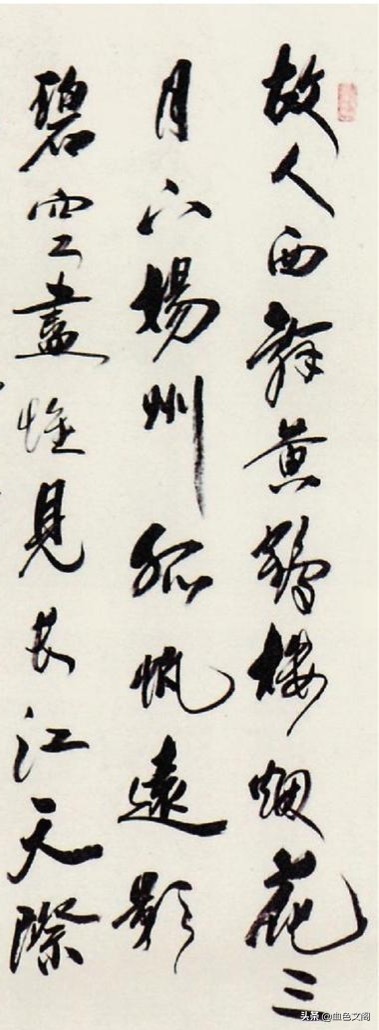 故人西辞黄鹤楼烟花三
月下扬州孤帆远影
碧空盡惟見長江天際
头条 @曲色文阁